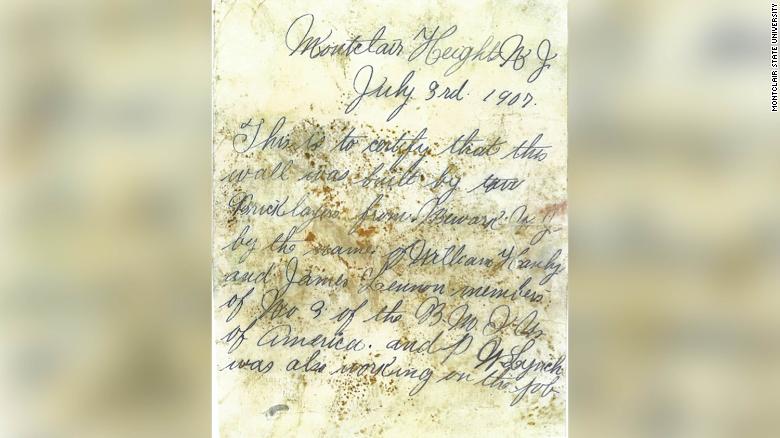 Montclair Height N J
July 3rd. 1907.
This is to certify that this
wall was built by two
Bricklayers from Newark. N. J.
by the names of William Hanly
and James Lennon members
of No 3 of the B. M. I. U.
of America. and P W Lynch
was also working on the job
MONTCLAIR STATE UNIVERSITY